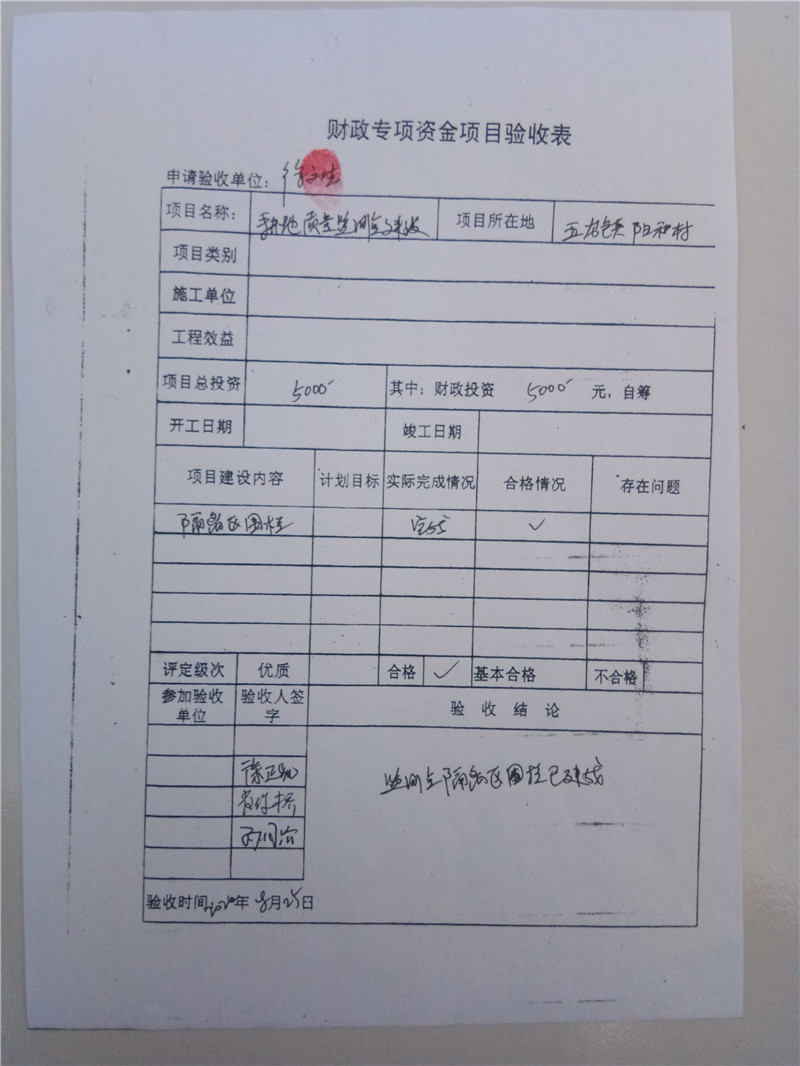 财政专项资金项目验收表
申请验收单位: 徐文生
项目名称: 耕地质量监测点建设 项目所在地 五龙镇阳和村
项目类别
施工单位
工程效益
项目总投资 5000 其中: 财政投资 5000 元, 自筹
开工日期 竣工日期
项目建设内容 计划目标 实际完成情况 合格情况 存在问题
隔离区围栏 完成 ✓
评定级次 优质 合格 ✓ 基本合格 不合格
参加验收单位 验收人签字 验收结论
监测点隔离区围栏已建成
验收时间2020年8月25日